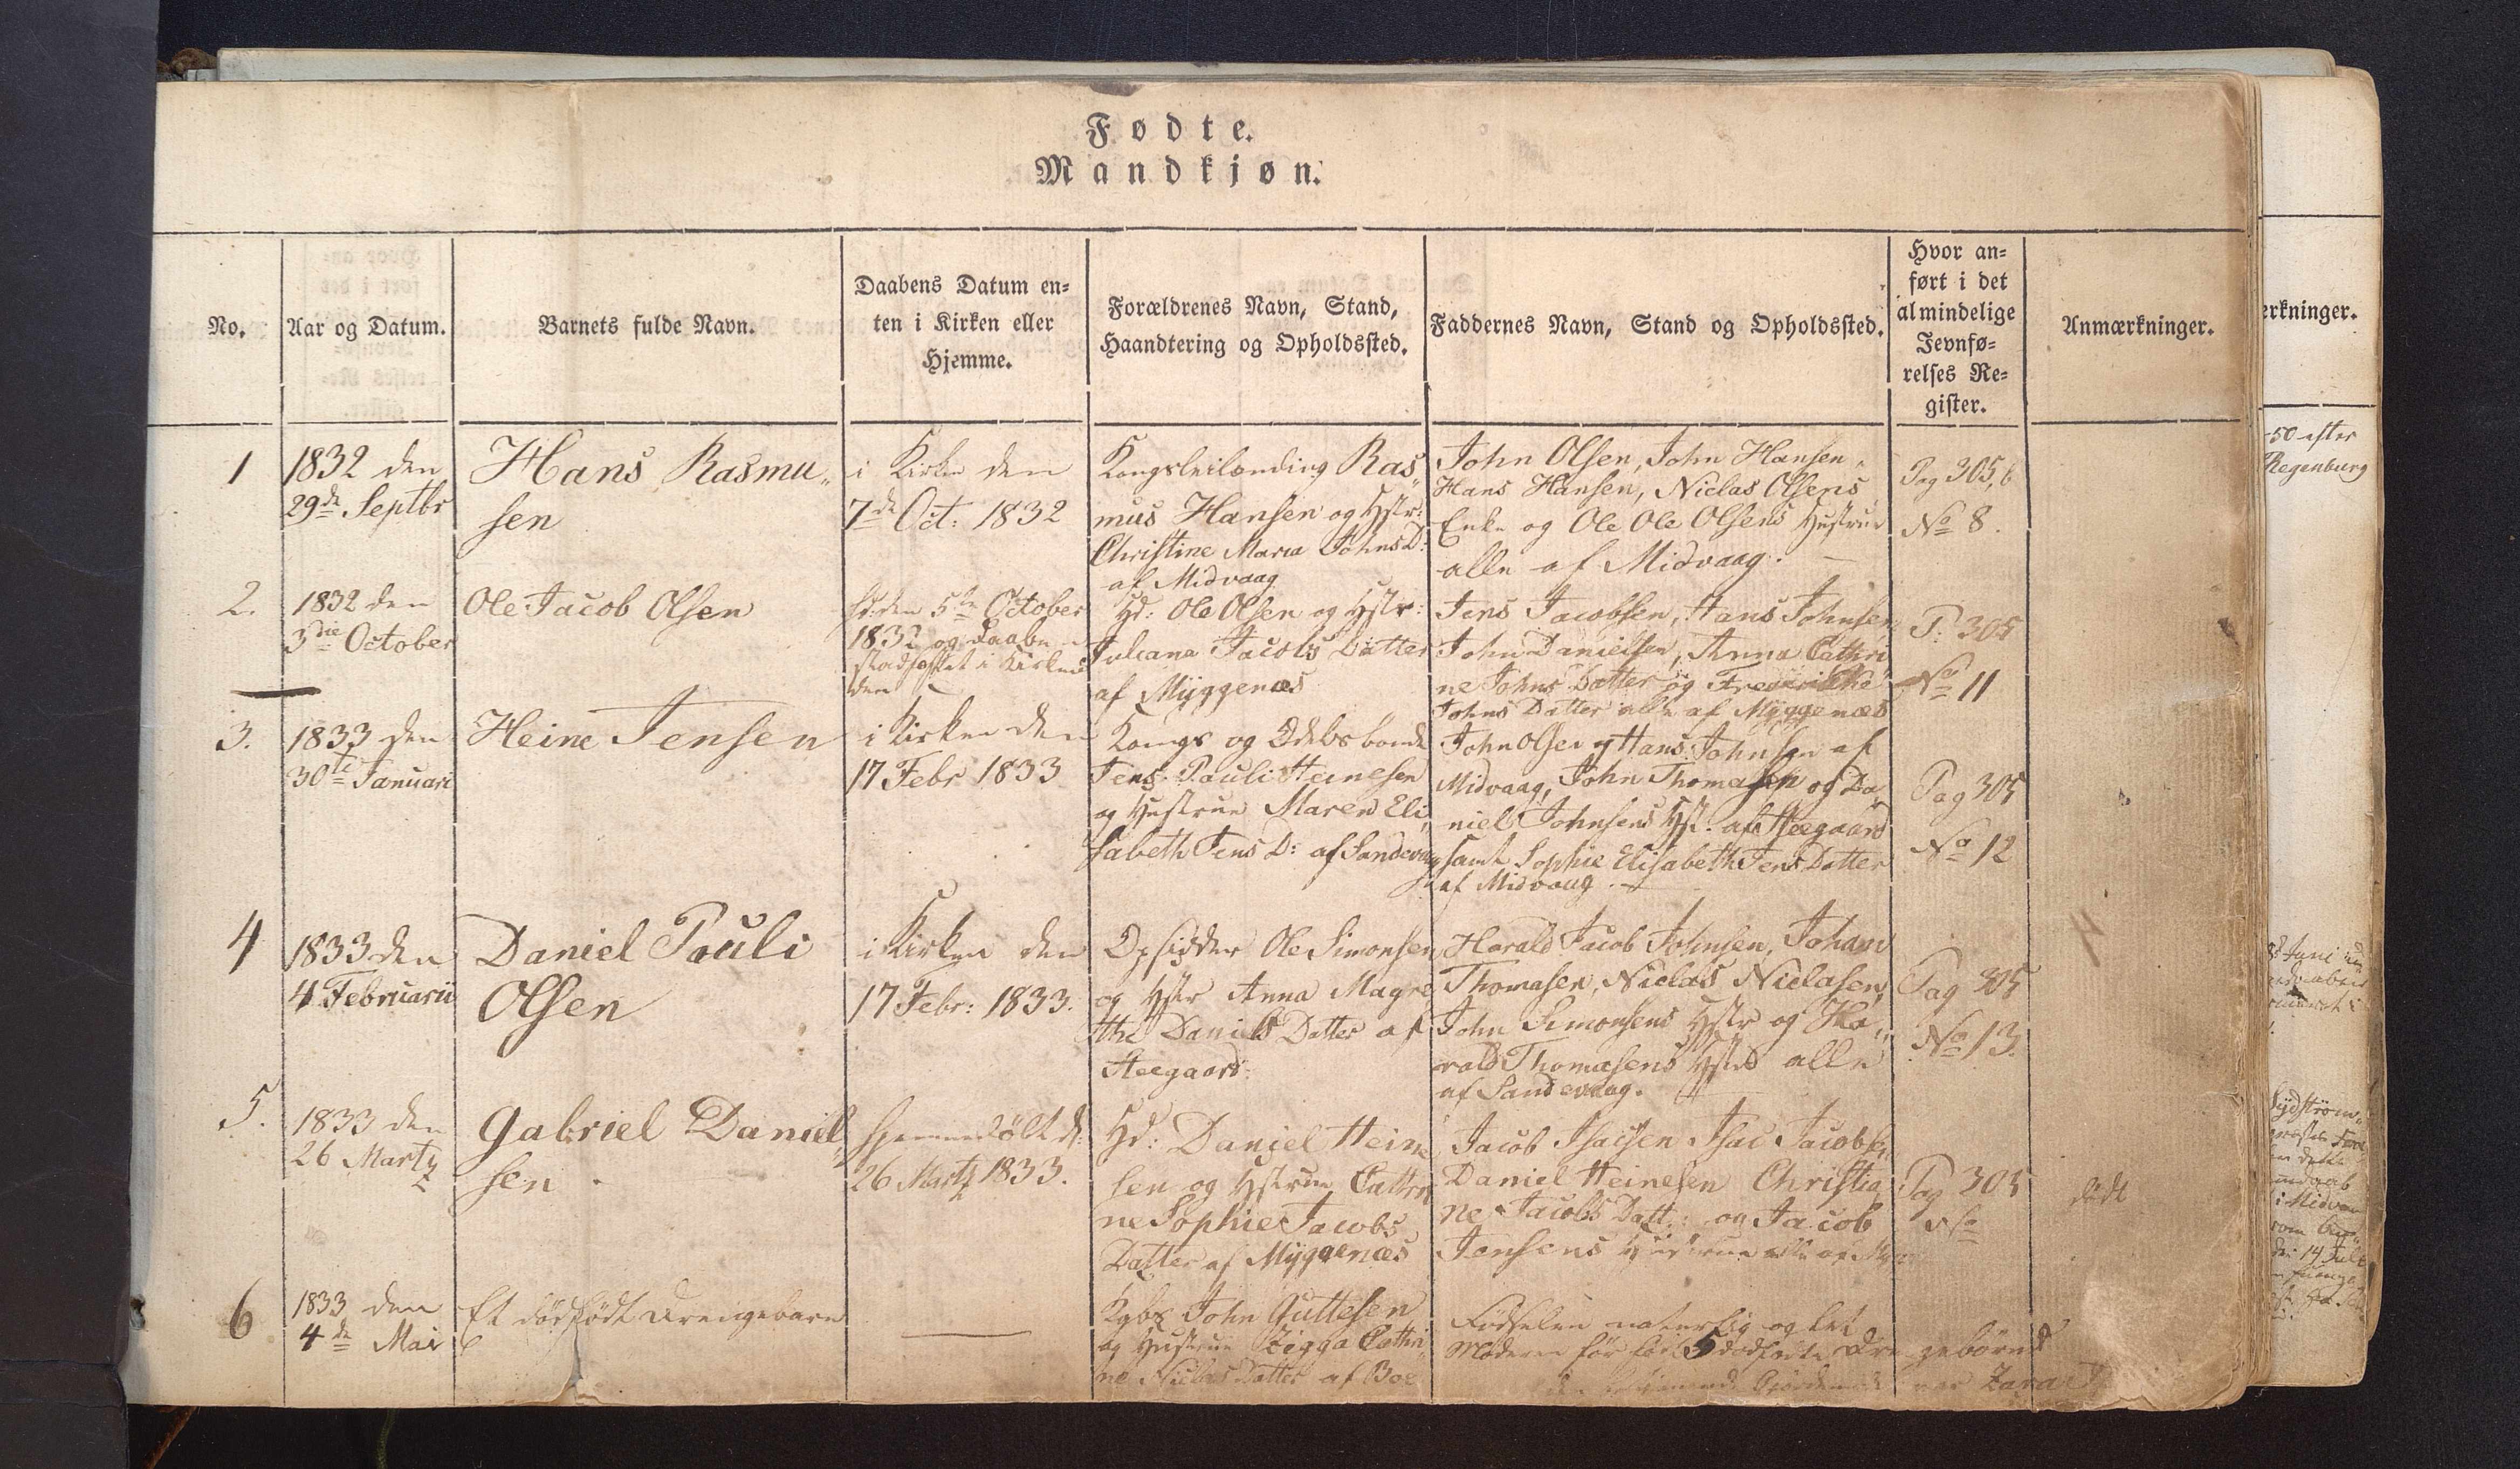 Fødte.
Mandkjøn.
No.
Aar og Datum.
Barnets fulde Navn.
Daabens Datum en-
ten i Kirken eller
Hjemme.
Forældrenes Navn, Stand,
Haandtering og Opholdssted.
Faddernes Navn, Stand og Opholdssted.
Hvor an-
ført i det
almindelige
Jevnfø-
relses Re-
gister.
Anmærkninger.
1
1832 den
29de Septbr
Hans Rasmu„
sen
i Kirken den
7de Oct: 1832
Kongsleilending Ras„
mus Hansen og Hstr:
Christine Maria JohnsD:
af Midvaag
John Olsen, John Hansen,
Hans Hansen, Niclas Olsens
Enke og Ole Ole Olsens Hustrue
alle af Midvaag.
Pag 305, 6
No 8.
2.
1832 den
3die October
Ole Jacob Olsen
den 5te October
1832 og Daaben
stadfæstet i Kirken
den
Hd: Ole Olsen og Hstr:
Juliana Jacobs Datter
af Myggenæs
Jens Jacobsen, Hans Johnsen
John Danielsen, Anna Cathri
ne Johns Datter og Frederikke
Johns Datter alle af Myggenæs
P: 305
No 11
3.
1833 den
30te Januari
Heine Jensen
i Kirken den
17 Febr 1833
Kongs og Odelsbonde
Jens Pauli Heinesen
og Hustrue Maren Eli„
sabeth Jens D: af Sandevaag
John Olsen og Hans Johnsen af
Midvaag, John Thomasen og Da„
niel Johnsens Hst. af Heegaard
samt Sophie Elisabeth Jens Datter
af Midvaag.
Pag 305
No 12
4
1833 den
4 Februarii
Daniel Pauli
Olsen
i Kirken den
17 Febr: 1833.
Opsidder Ole Simonsen
og Hstr Anna Magre
the Daniels Datter af
Heegaard
Harald Jacob Johnsen, Johan
Thomasen, Niclas Niclasen,
John Simonsens Hstr og Ha„
rald Thomasens Hstr alle
af Sandevaag.
Pag 305
No 13.
5.
1833 den
26 Marty
Gabriel Daniel„
sen.
hjemmedøbt d:
26 Marty 1833.
Hd: Daniel Heine
sen og Hstrue Cathri
ne Sophie Jacobs
Datter af Myggenæs
Jacob Isacsen Isac Jacobsen
Daniel Heinesen Christia„
ne Jacobs Datt: og Jacob
Jensens Hustrue alle af
Pag 305
No
død
6
1833 den
4de Mai
Et dødfødt Drengebarn
Kgbs John Guttesen
og Hustrue Zigga Cathri„
ne Niclas Datter af Boe
Fødselen naturlig og let
Moderen før født 5 dødfødte Drengebørn
var Zara
erkninger.
50 efter
Regenburg
Sydstrøm„
i Midva
14 Juli